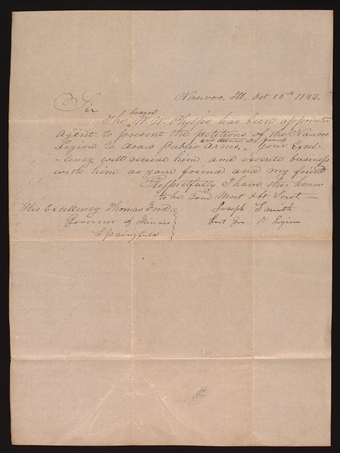 Nauvoo, Ill. Oct 15th 1843.
Sir
bearer
The W. W. Phelps has been appointed
agent to present the petitions of the Nauvoo
Legion to draw public arms. Your Excel-
lency will receive him and execute business
with him as your friend and my friend
Respectfully I have the honor
to be Your Most Obt Servt.—
His Excellency Thomas Ford
Joseph Smith
Governor of Illinois
Lieut Gen N. Legion
Springfield